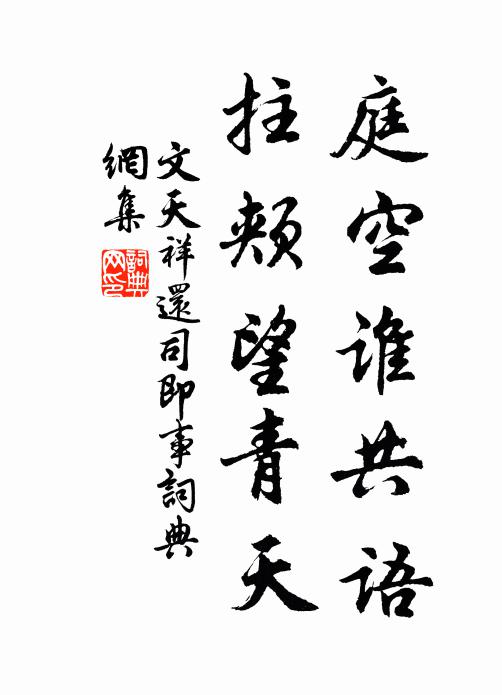 庭空谁共语
拄颊望青天
文天祥還司即事詞典
網集
詞典网印